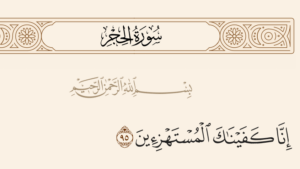 سُورَةُ الحِجْرِ
بِسْمِ اللَّهِ الرَّحْمَٰنِ الرَّحِيمِ
إِنَّا كَفَيْنَاكَ ٱلْمُسْتَهْزِءِينَ ٩٥